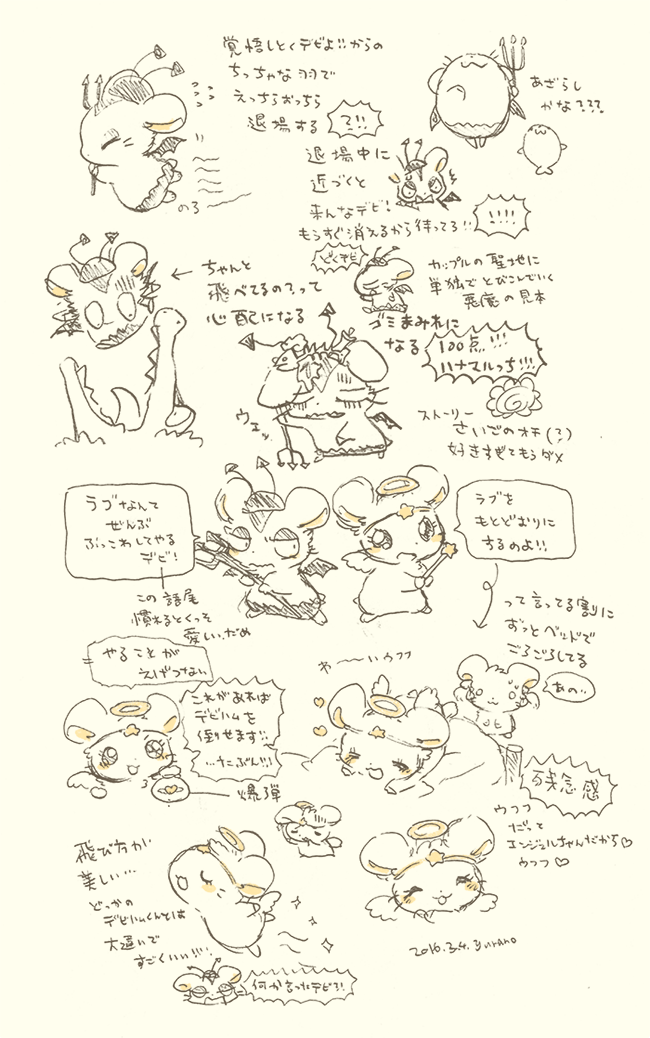 覚悟しとくデビよ!!からの
ちっちゃな羽で
えっちらおっちら
退場する
?!!
あざらし
かな???
のろ〜
退場中に
近づくと
来んなデビ!
もうすぐ消えるから待ってろ!!
!!!!
← ちゃんと
飛べてるの?って
心配になる
どくデビ
カップルの聖地に
単独でとびこんでいく
悪魔の見本
ゴミまみれに
なる
100点!!!
ハナマルっち!!!
ウェッ
ストーリー
さいごのオチ(?)
好きすぎてもうダメ
ラブなんて
ぜんぶ
ぶっこわしてやる
デビ!
ラブを
もとどおりに
するのよ!!
この語尾
慣れるとくっそ
愛しいだめ
って言ってる割に
ずっとベッドで
ごろごろしてる
やることが
えげつない
これがあれば
デビハムを
倒せます!!
…たぶん!!
爆弾
わ〜〜いウフフ
あの…
残念感
飛び方が
美しい…
どっかの
デビハムくんとは
大違いで
すごくいい!!!
ウフフ
だって
エンジェルちゃんだから♡
ウフフ♡
何か言ったデビ?!
2016.3.4. yurano